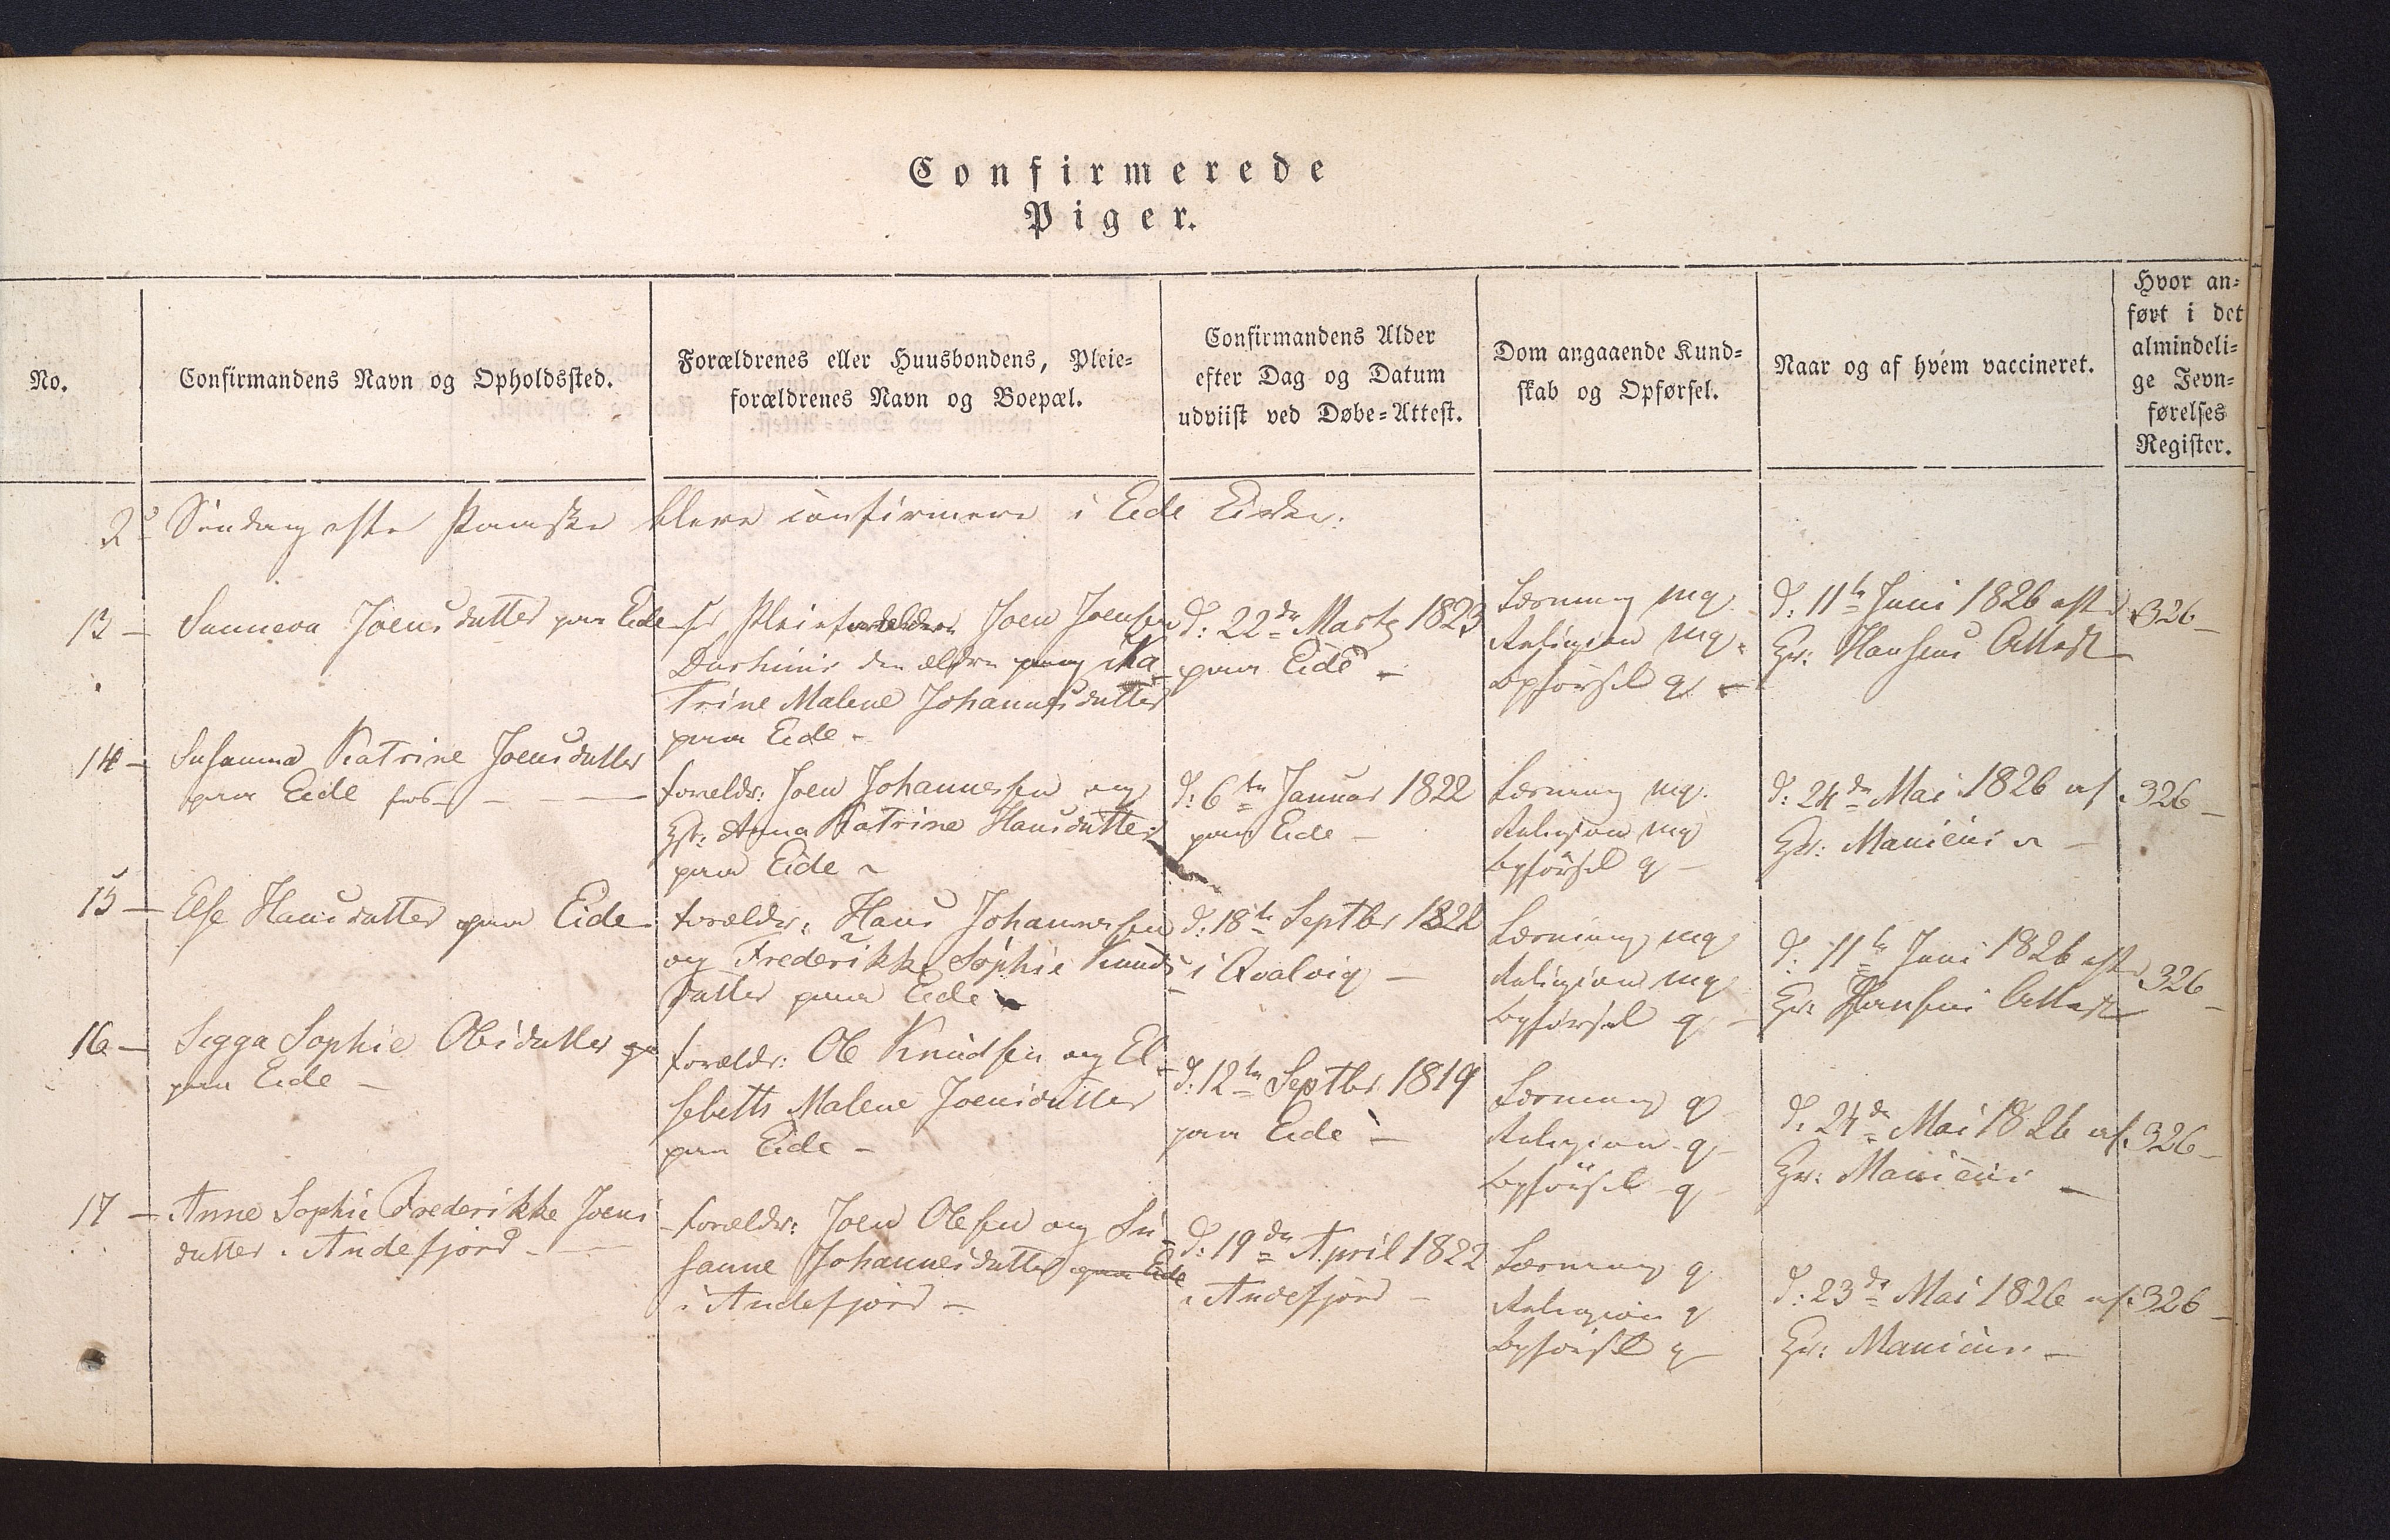 Confirmerede
Piger.
No.
Confirmandens Navn og Opholdssted.
Forældrenes eller Huusbondens, Pleie-
forældrenes Navn og Boepæl.
Confirmandens Alder
efter Dag og Datum
udviist ved Døbe-Attest.
Dom angaaende Kund-
skab og Opførsel.
Naar og af hvem vaccineret.
Hvor an-
ført i det
almindeli-
ge Jevn-
førelses
Register.
2 Söndag efter Paaske bleve confirmere i Eide Kirke:
13 –
Sunneva Joensdatter paa Eide
Pleieforældre Joen Joensen
den ældre og Ka-
trine Malene Johannesdatter
paa Eide –
d: 22de Marts 1823
paa Eide –
Læsning mg.
Religion mg.
Opförsel g –
d: 11te Juni 1826 efter
Hr: Hansens Attest
326 –
14 –
Susanna Katrine Joensdatter
paa Eide
Foreldr: Joen Johannesen og
Anna Katrine Hansdatter
paa Eide
d: 6te Januar 1822
paa Eide –
Læsning mg.
Religion mg
Opförsel g –
d: 24de Mai 1826 af
Hr: Manicus
326 –
15 –
Else Hansdatter paa Eide
Forældr: Hans Johannesen
og Frederikke Sophie Knuds
datter paa Eide
d: 18te Septbr 1822
i Qvalvig –
Læsning mg
Religion mg
Opförsel g –
d: 11te Juni 1826 efter
Hr: Hansens Attest
326 –
16 –
Sigga Sophie Olesdatter
paa Eide –
Forældr: Ole Knudsen og El-
sebeth Malene Joensdatter
paa Eide –
d: 12te Septbr 1819
paa Eide –
Læsning g
Religion g –
Opförsel g –
d: 24de Mai 1826 af
Hr: Manicus –
326 –
17 –
Anne Sophie Frederikke Joens
datter i Andefjord –
Forældr: Joen Olesen og Su-
sanne Johannesdatter paa Eide
i Andefjord –
d: 19de April 1822
i Andefjord –
Læsning g
Religion g
Opförsel g
d: 23de Mai 1826 af
Hr: Manicus –
326 –